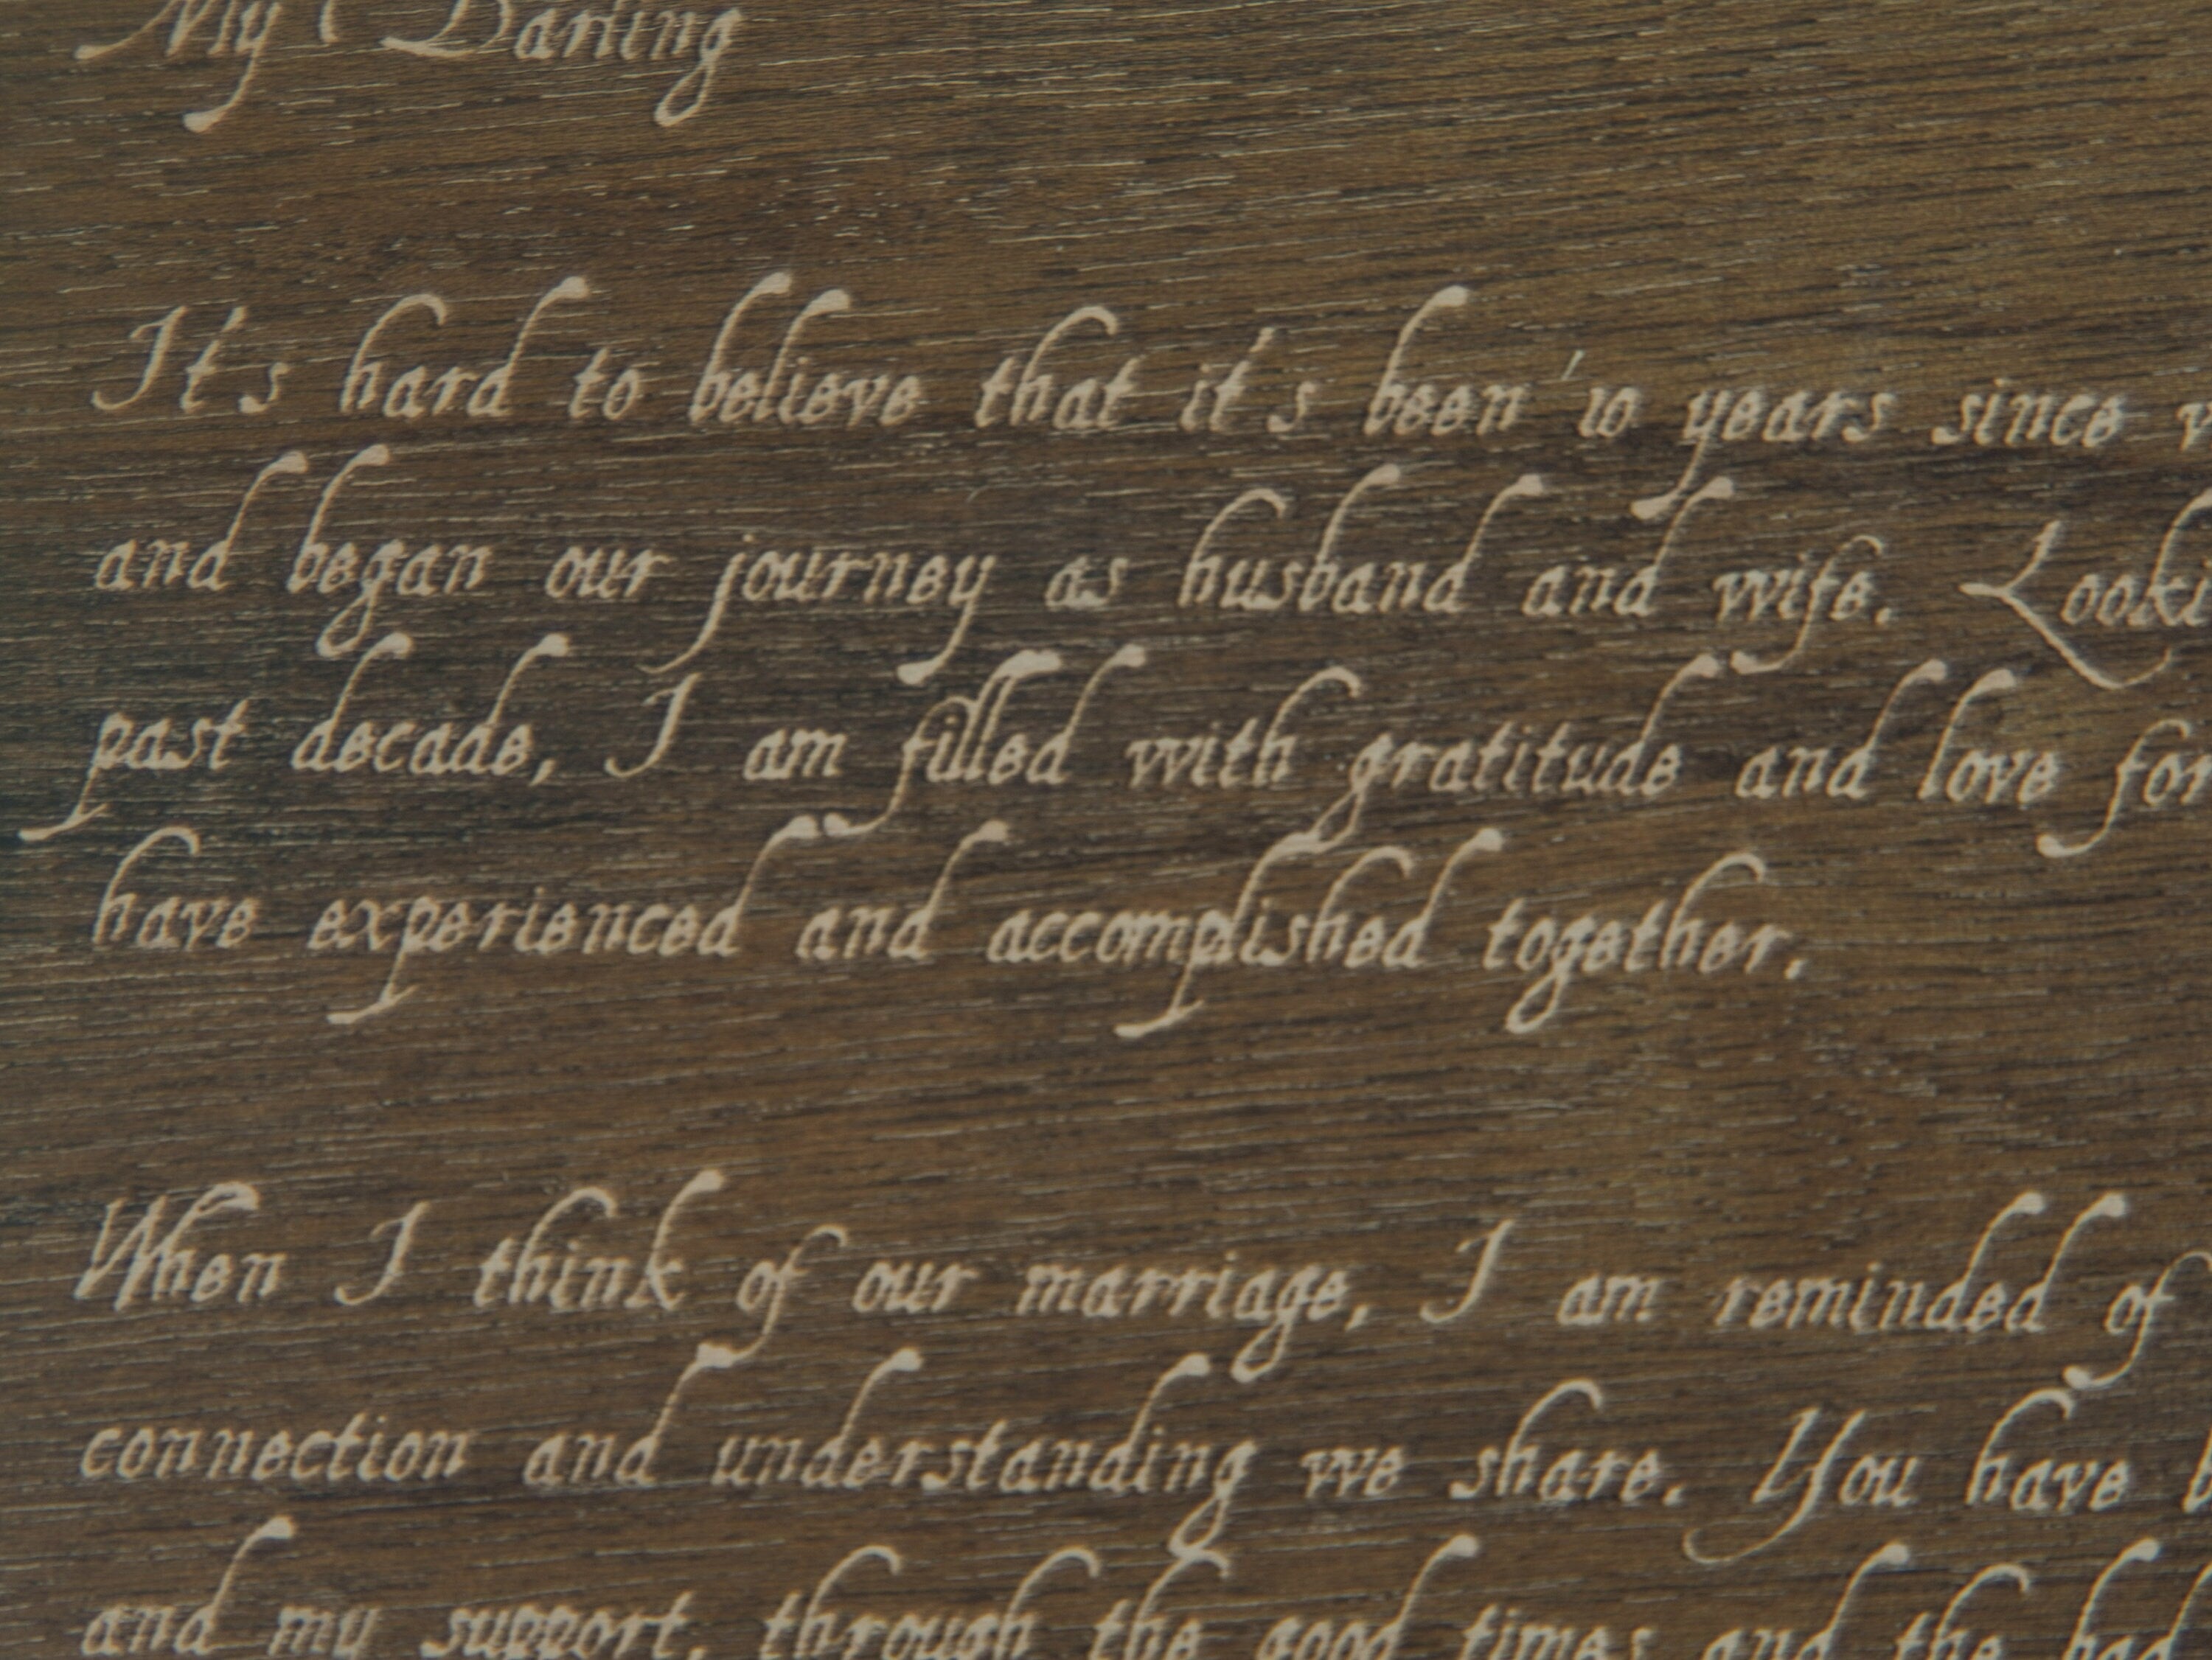 My Darling
It's hard to believe that it's been 10 years since
and began our journey as husband and wife. Looki
past decade, I am filled with gratitude and love for
have experienced and accomplished together.
When I think of our marriage, I am reminded of
connection and understanding we share. You have
and my support, through the good times and the bad